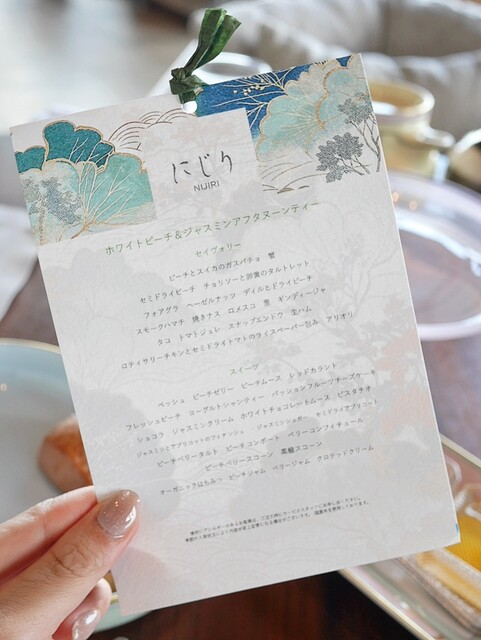 にじり
NIJIRI
ホワイトピーチ&ジャスミンアフタヌーンティー
セイヴォリー
ピーチとスイカのガスパチョ 蟹
セミドライピーチ チョリソーと卵黄のタルトレット
フォアグラ ヘーゼルナッツ ディルとドライピーチ
スモークハマチ 焼きナス ロメスコ 黒 ギンディージャ
タコ トマトジュレ スナップエンドウ 生ハム アリオリ
ロティサリーチキンとセミドライトマトのライスペーパー包み
スイーツ
ペッシュ ピーチゼリー ピーチムース レッドカラント
フレッシュピーチ ヨーグルトシャンティー パッションフルーツチーズケーキ
ショコラ ジャスミンクリーム ホワイトチョコレートムース ピスタチオ
ジャスミンとアプリコットのフィナンシェ ジャスミンシュガー セミドライアプリコット
ピーチベリータルト ピーチコンポート ベリーコンフィチュール
ピーチベリースコーン 黒糖スコーン
オーガニックはちみつ ピーチジャム ベリージャム クロテッドクリーム